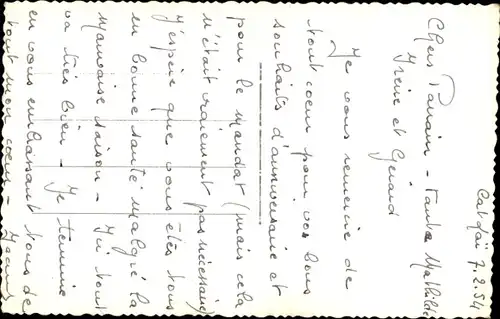 Calojaï 7.2.54
Chers Parrain - Tante Mathilde
Irène et Gérard
Je vous remercie de
tout coeur pour vos bons
souhaits d'anniversaire et
pour le mandat (mais cela
n'était vraiment pas nécessaire)
J'espère que vous êtes tous
en bonne santé malgré la
mauvaise saison - Ici tout
va très bien - Je termine
en vous embrassant tous de
tout mon coeur -